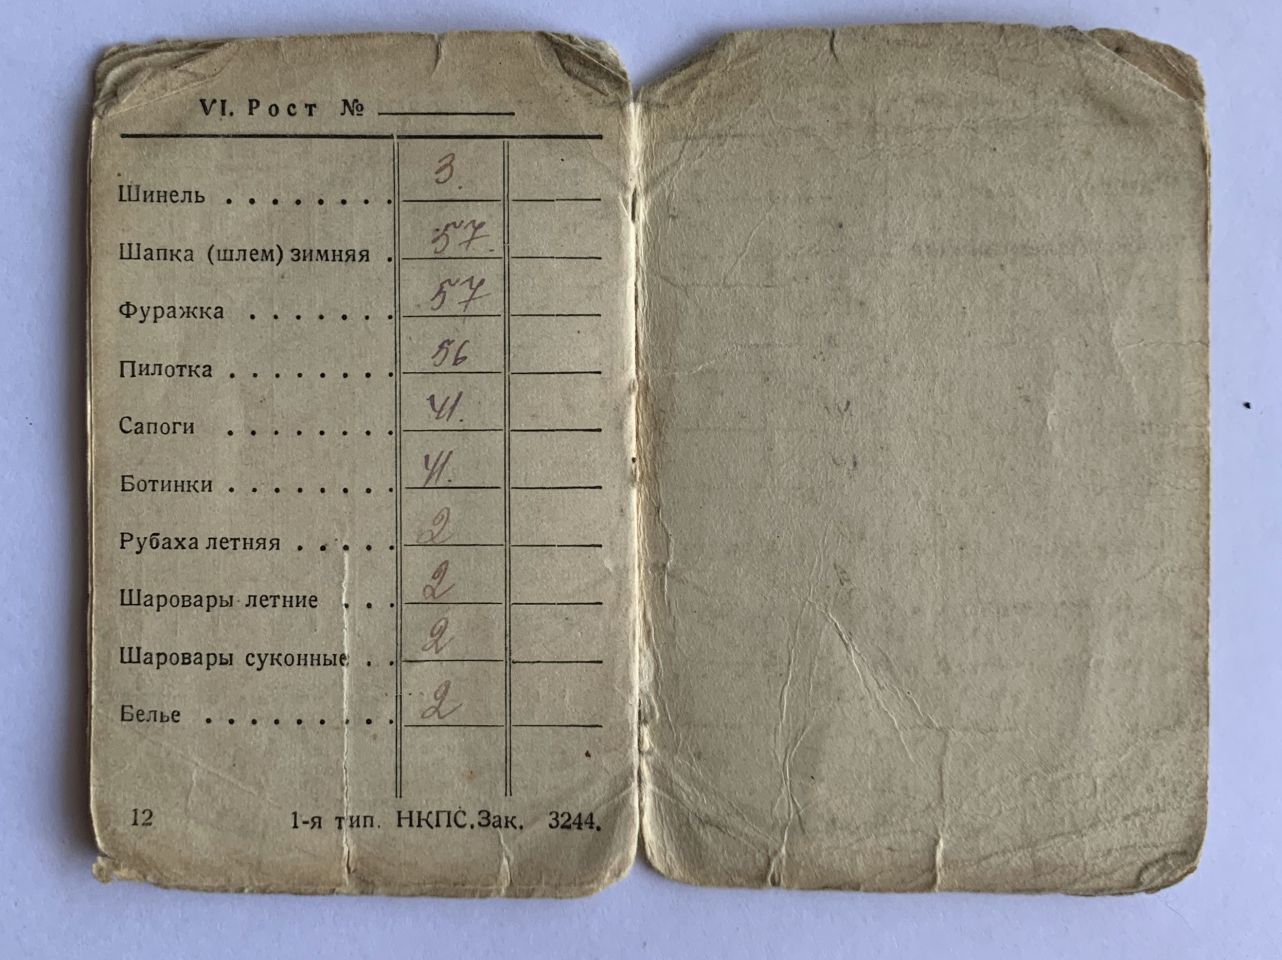 VI. Рост № ______
Шинель . . . . . . . . 3.
Шапка (шлем) зимняя . 57.
Фуражка . . . . . . . 57
Пилотка . . . . . . . . 56
Сапоги . . . . . . . . 41.
Ботинки . . . . . . . . 41.
Рубаха летняя . . . . . 2
Шаровары летние . . . 2
Шаровары суконные . . 2
Белье . . . . . . . . . 2
12 1-я тип. НКПС. Зак. 3244.